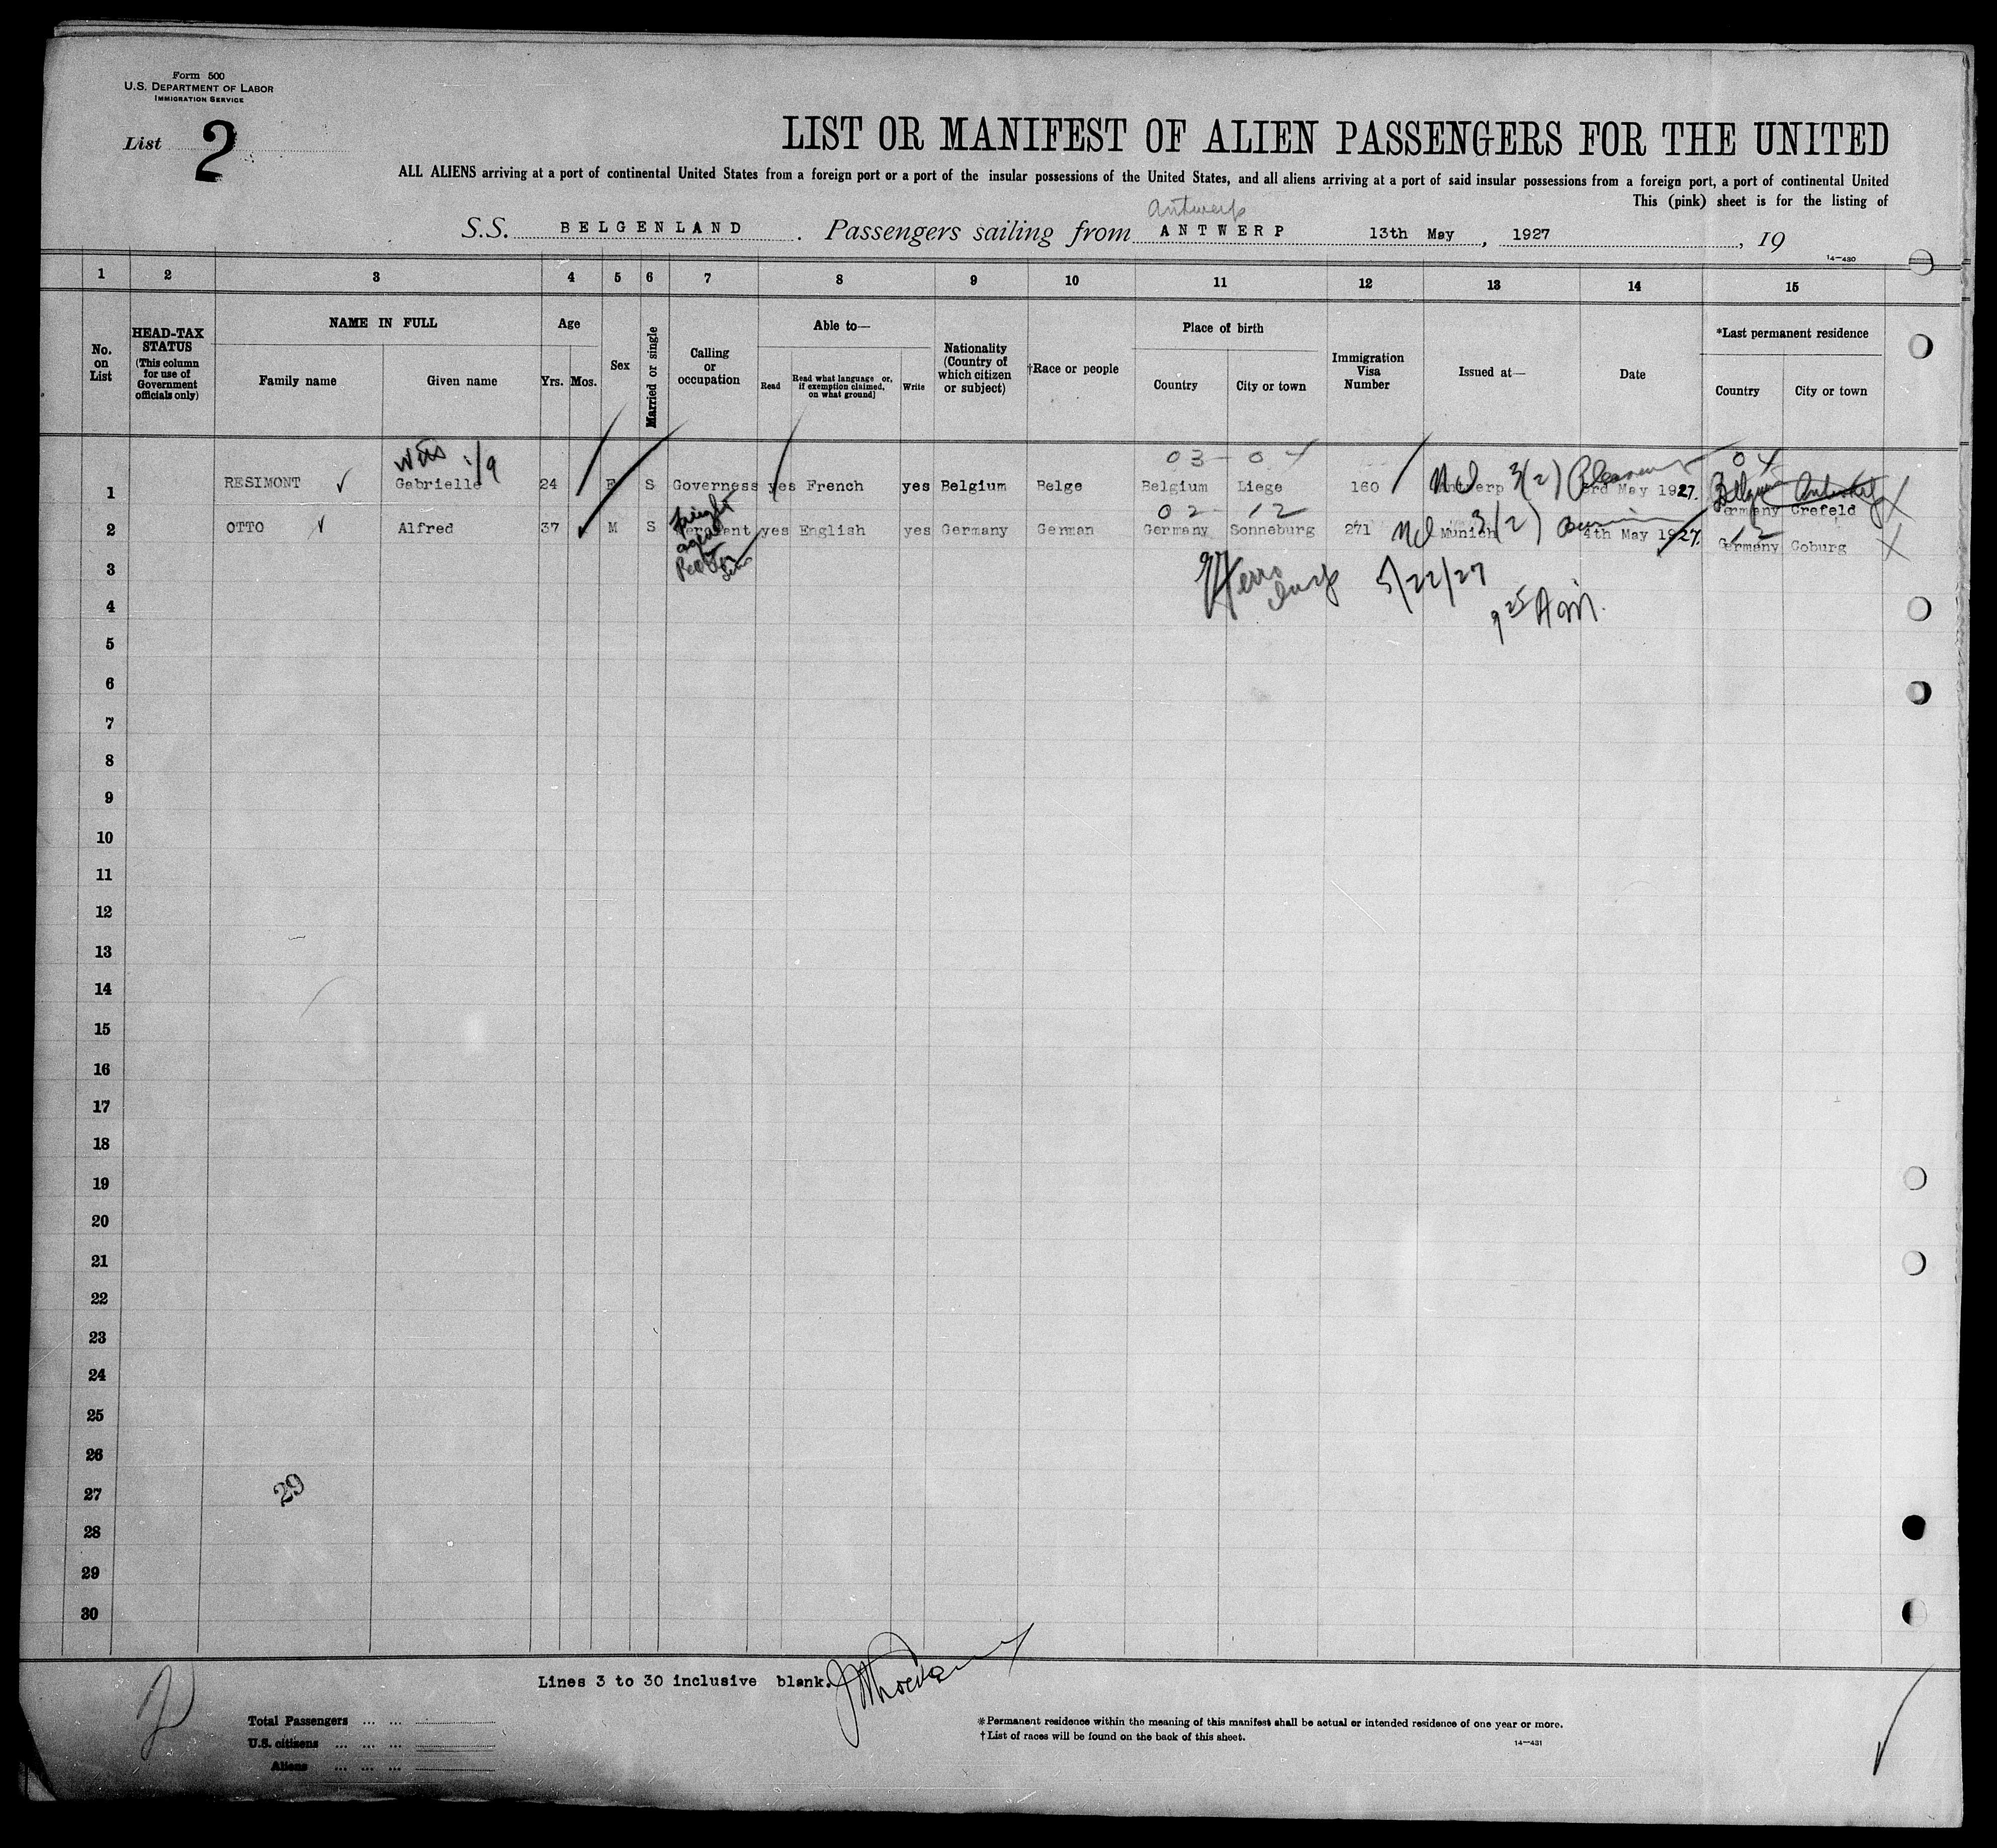 Form 500
U.S. DEPARTMENT OF LABOR
IMMIGRATION SERVICE
List 2
LIST OR MANIFEST OF ALIEN PASSENGERS FOR THE UNITED
ALL ALIENS arriving at a port of continental United States from a foreign port or a port of the insular possessions of the United States, and all aliens arriving at a port of said insular possessions from a foreign port, a port of continental United
This (pink) sheet is for the listing of
Antwerp
S.S. BELGENLAND. Passengers sailing from ANTWERP 13th May, 1927, 19
14-430
1 2 3 4 5 6 7 8 9 10 11 12 13 14 15
No. on List
HEAD-TAX STATUS
(This column for use of Government officials only)
NAME IN FULL
Family name
Given name
Age
Yrs.
Mos.
Sex
Married or single
Calling or occupation
Able to—
Read
Read what language or, if exemption claimed, on what ground]
Write
Nationality (Country of which citizen or subject)
†Race or people
Place of birth
Country
City or town
Immigration Visa Number
Issued at—
Date
*Last permanent residence
Country
City or town
03-04 04
1 RESIMONT Gabrielle 24 F S Governess yes French yes Belgium Belge Belgium Liege 160 Antwerp 3(2) 3rd May 1927. Belgium Germany Crefeld
02-12
2 OTTO Alfred 37 M S yes English yes Germany German Germany Sonneburg 271 Munich 3(2) 4th May 1927. Germany Coburg
3 5/22/27
4 9 25 AM.
5
6
7
8
9
10
11
12
13
14
15
16
17
18
19
20
21
22
23
24
25
26
27 29
28
29
30
Lines 3 to 30 inclusive blank.
Total Passengers ... ...
U.S. citizens ... ... ...
Aliens ... ... ...
*Permanent residence within the meaning of this manifest shall be actual or intended residence of one year or more.
†List of races will be found on the back of this sheet.
14-431